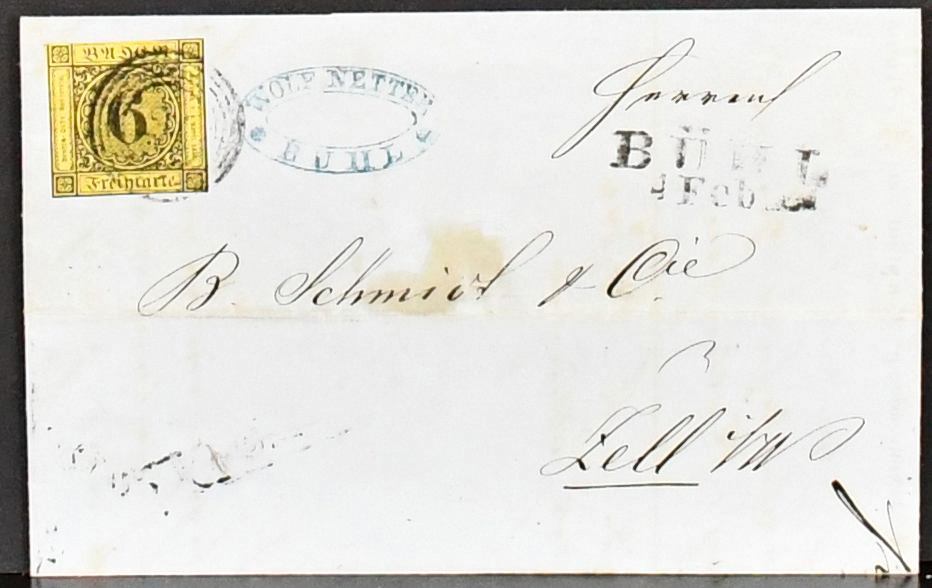 BADEN
6
Freimarke
WOLF NETTER
BÜHL
Herren
BÜHL
4 Feb
B. Schmidt & Cie
Zell i/W